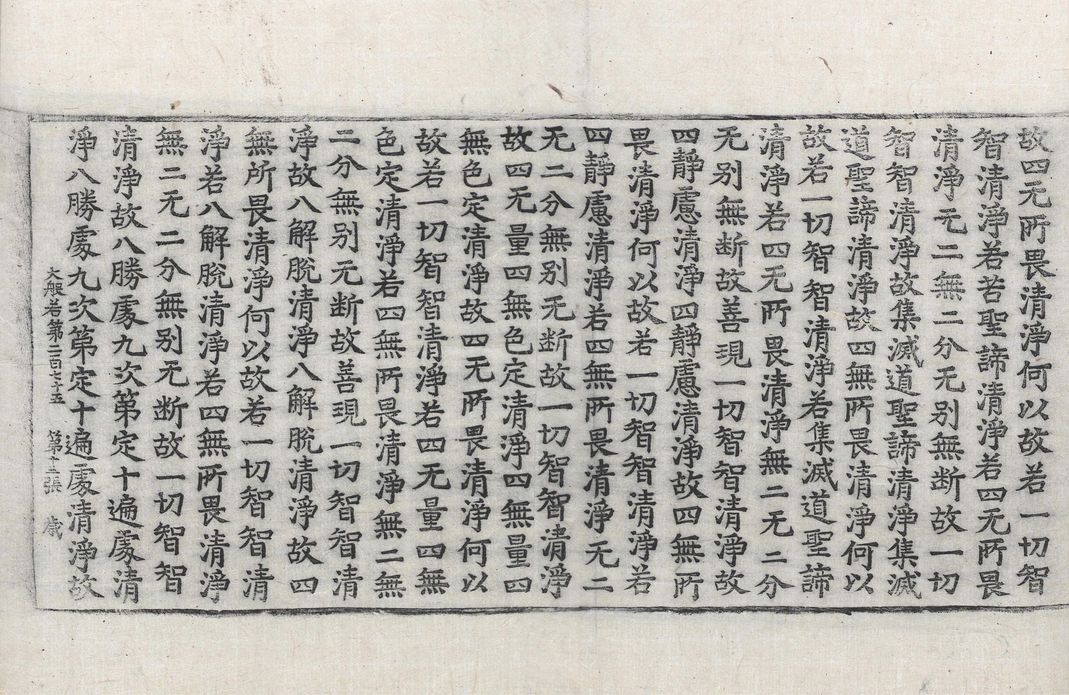 故四无所畏清淨何以故若一切智
智清淨若苦聖諦清淨若四无所畏
清淨无二無二分无别無断故一切
智智清淨故集滅道聖諦清淨集滅
道聖諦清淨故四無所畏清淨何以
故若一切智智清淨若集滅道聖諦
清淨若四无所畏清淨無二无二分
无别無断故善現一切智智清淨故
四靜慮清淨四靜慮清淨故四無所
畏清淨何以故若一切智智清淨若
四靜慮清淨若四無所畏清淨无二
无二分無别无断故一切智智清淨
故四无量四無色定清淨四無量四
無色定清淨故四无所畏清淨何以
故若一切智智清淨若四无量四無
色定清淨若四無所畏清淨無二無
二分無别无断故善現一切智智清
淨故八解脫清淨八解脫清淨故四
無所畏清淨何以故若一切智智清
淨若八解脫清淨若四無所畏清淨
無二无二分無别无断故一切智智
清淨故八勝處九次第定十遍處清
淨八勝處九次第定十遍處清淨故
大般若第二百七十五 張 歲